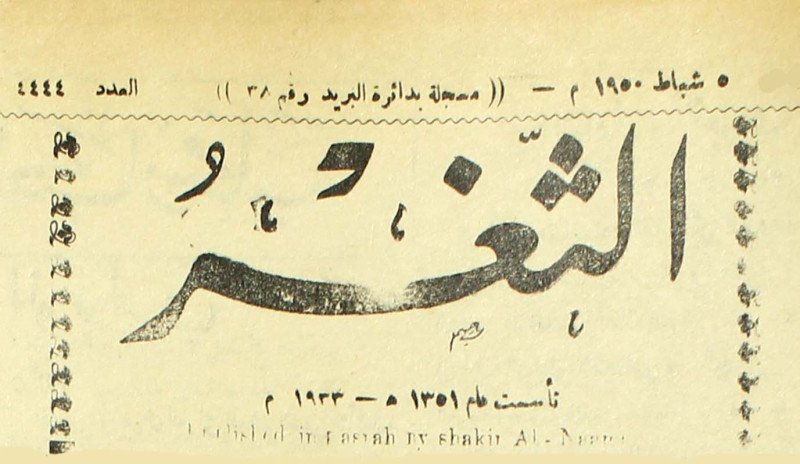 ٥ شباط ١٩٥٠ م — ((مسجلة بدائرة البريد رقم ٣٨)) العدد ٤٤٤٤
الثَّغْرُ
تأسست عام ١٣٥١ ه — ١٩٣٣ م
Published in Basrah by shakir Al-